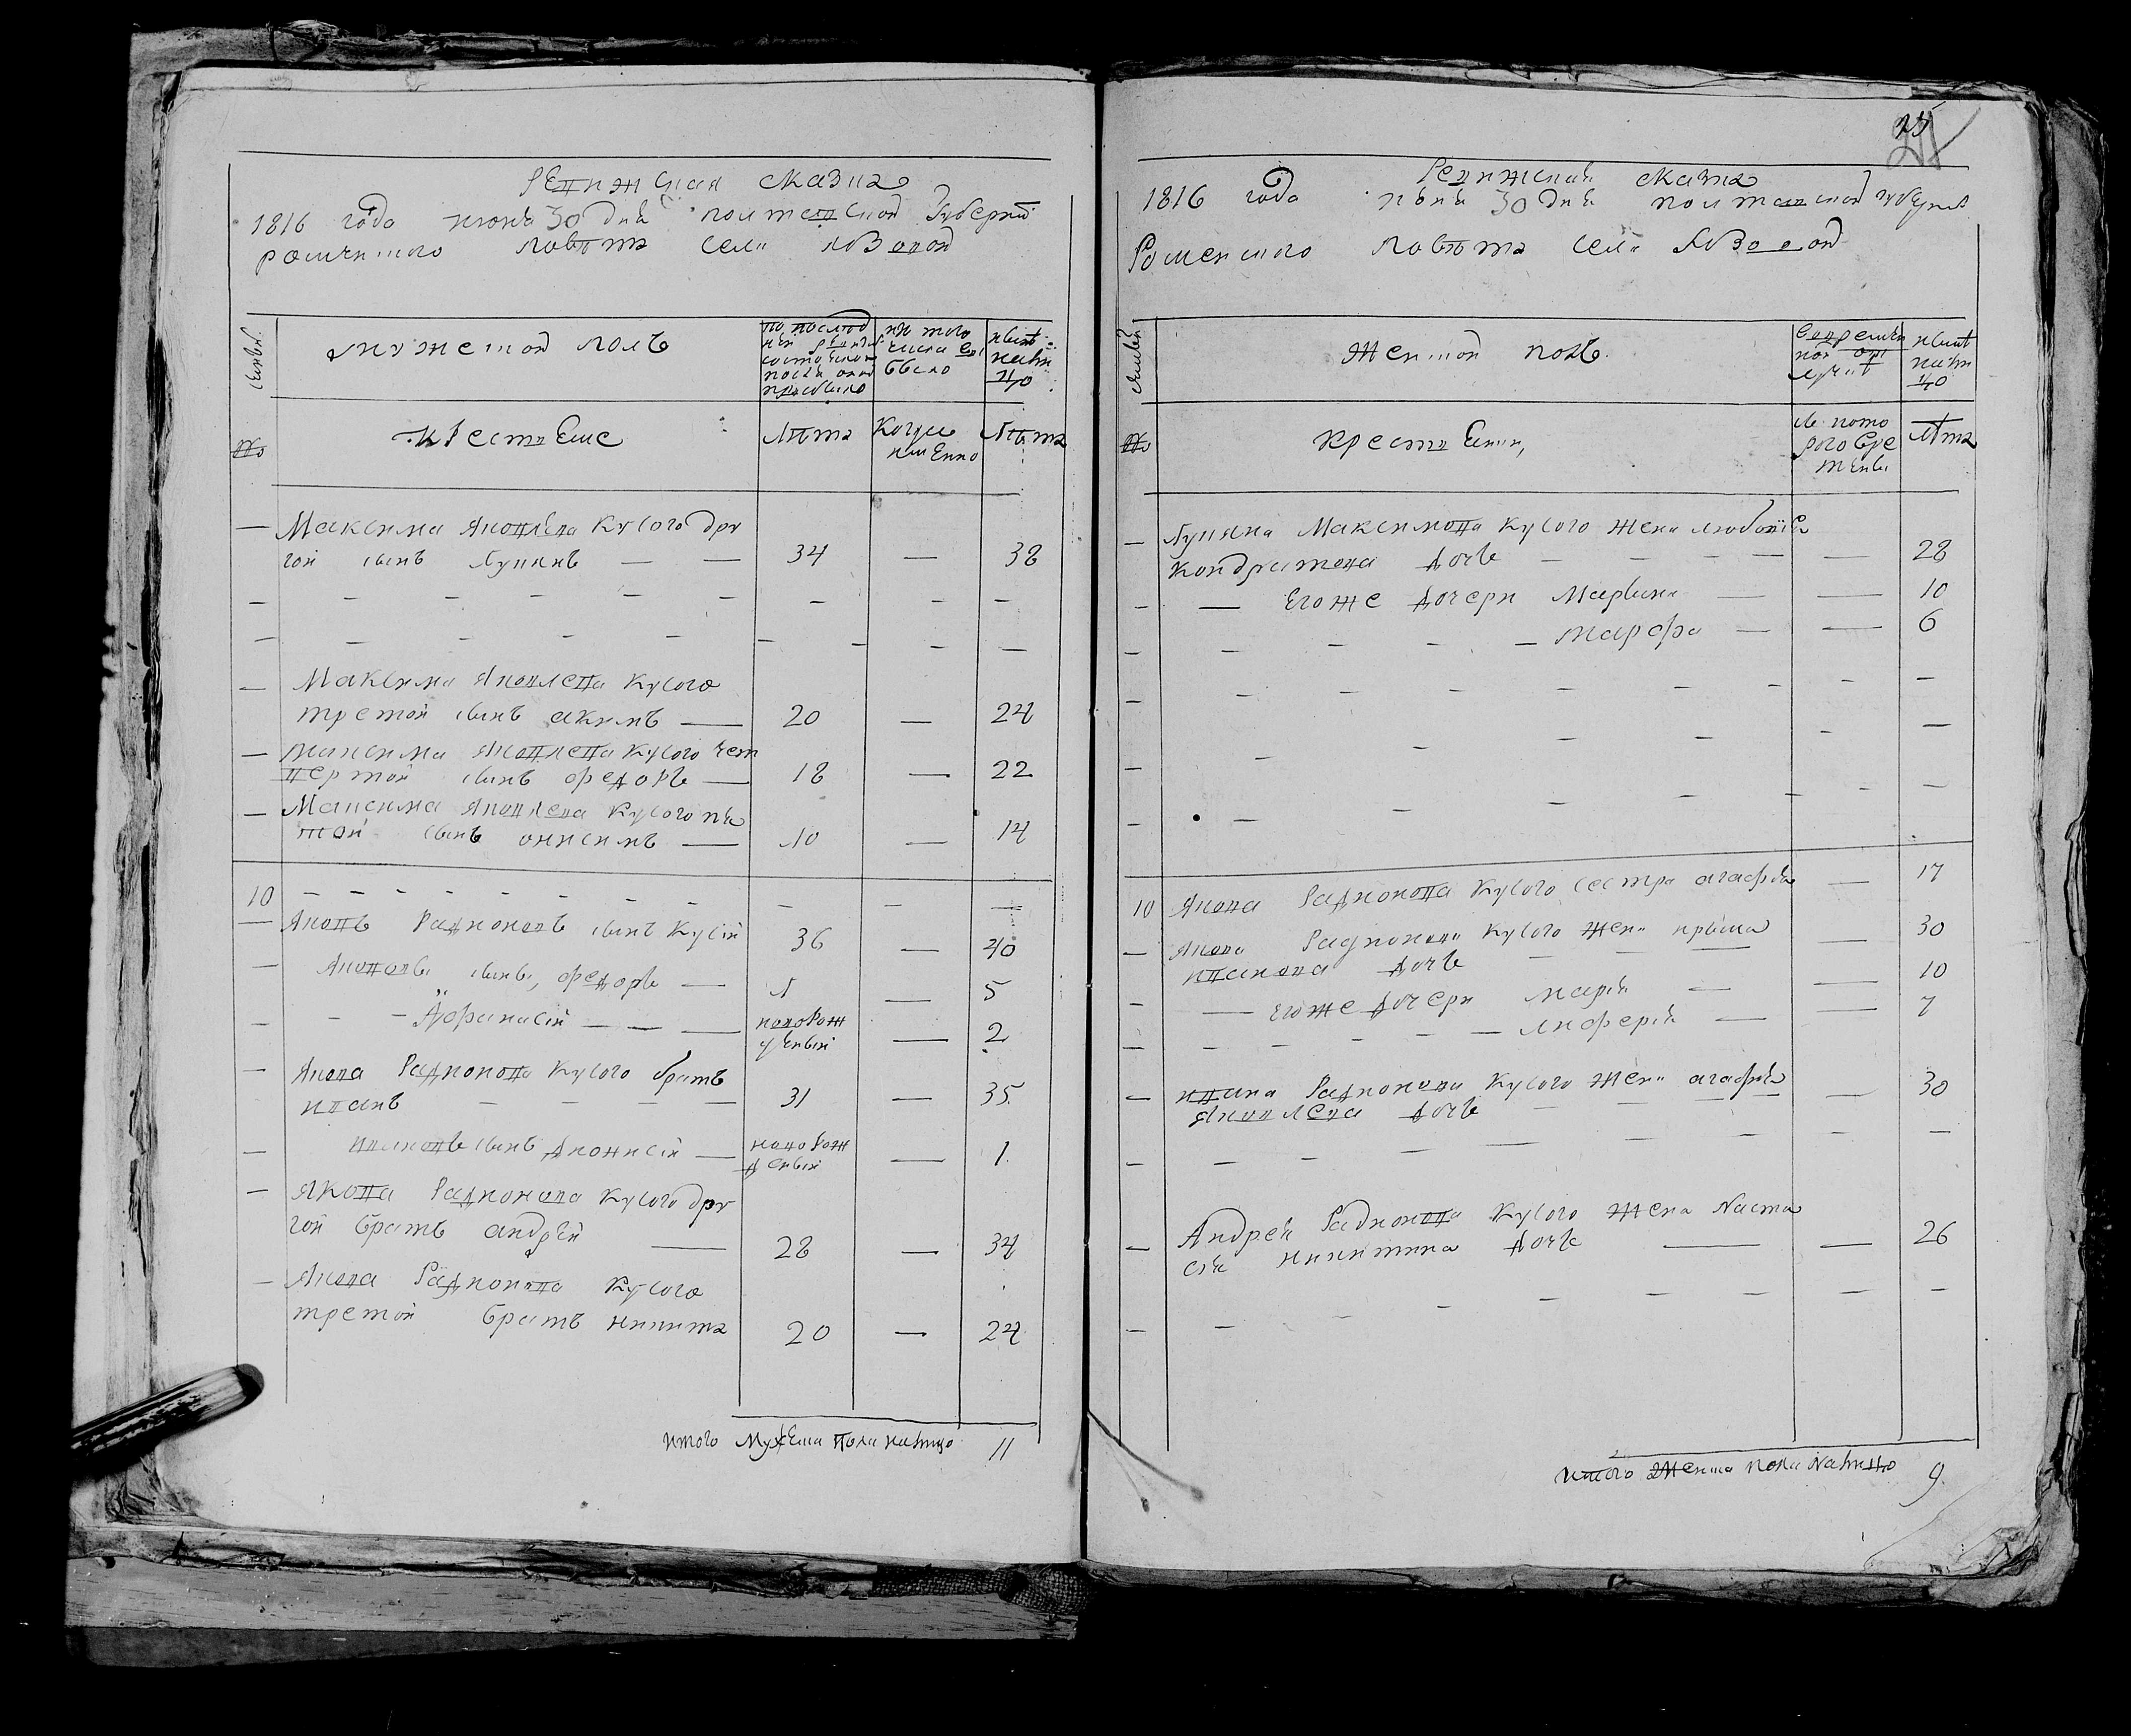 Ревижская сказка
1816 года июня 30 дня полтавской губерни
роменского повѣта села явоной
мужеской полъ
по послѣд
ней ревизи
состояло и
после оной
прибыло
из того
числа
выбыло
нынѣ
налы
цо
№
крестяне
Лѣта
Когда
имянно
Лѣта
— Максима Яковлева Кусого дру
гой сынъ Лукянъ — — 34 — 38
— Максима Яковлева Кусого
третой сынъ акимъ — 20 — 24
— Максима Яковлева Кусого чет
вертой сынъ федоръ — 18 — 22
— Максима Яковлева Кусого пя
той сынъ онисимъ — 10 — 14
10
— Яковъ Радионовъ сынъ Кусій 36 — 40
— Яковова сынъ, федоръ — 1 — 5
— Афанасій — — — новорож
денъій — 2
— Якова Радионова Кусого братъ
иванъ — — — — 31 — 35
— ивановъ сынъ Дионисій — новорож
денъій — 1
— Якова Радионова Кусого дру
гой братъ андрей — 28 — 34
— Якова Радионова Кусого
третой братъ никита 20 — 24
итого мужеска пола налицо 11
25
Ревижская сказка
1816 года июня 30 дня полтавской губерни
Роменского повѣта села явоной
женской полъ
нынѣ
налы
цо
№
крестяне,
съ кото
рого вре
мени
Лѣта
— Лукяна Максимова Кусого жена любовія
Кондратова дочь — — — — 28
— — егоже дочери Марина — — 10
— — — — — марфа — — 6
10 Якова Радионова Кусого сестра агафія — 17
— Якова Радионова Кусого жена ирына — 30
иванова дочь — — —
— — егоже дочери марія — — 10
— — — — — лукерія — — 7
— ивана Радионова Кусого жена агафія — 30
Яковлева дочь — — — —
— Андрея Радионова Кусого жена Наста
сія никитина дочь — — 26
итого женска пола налицо 9.